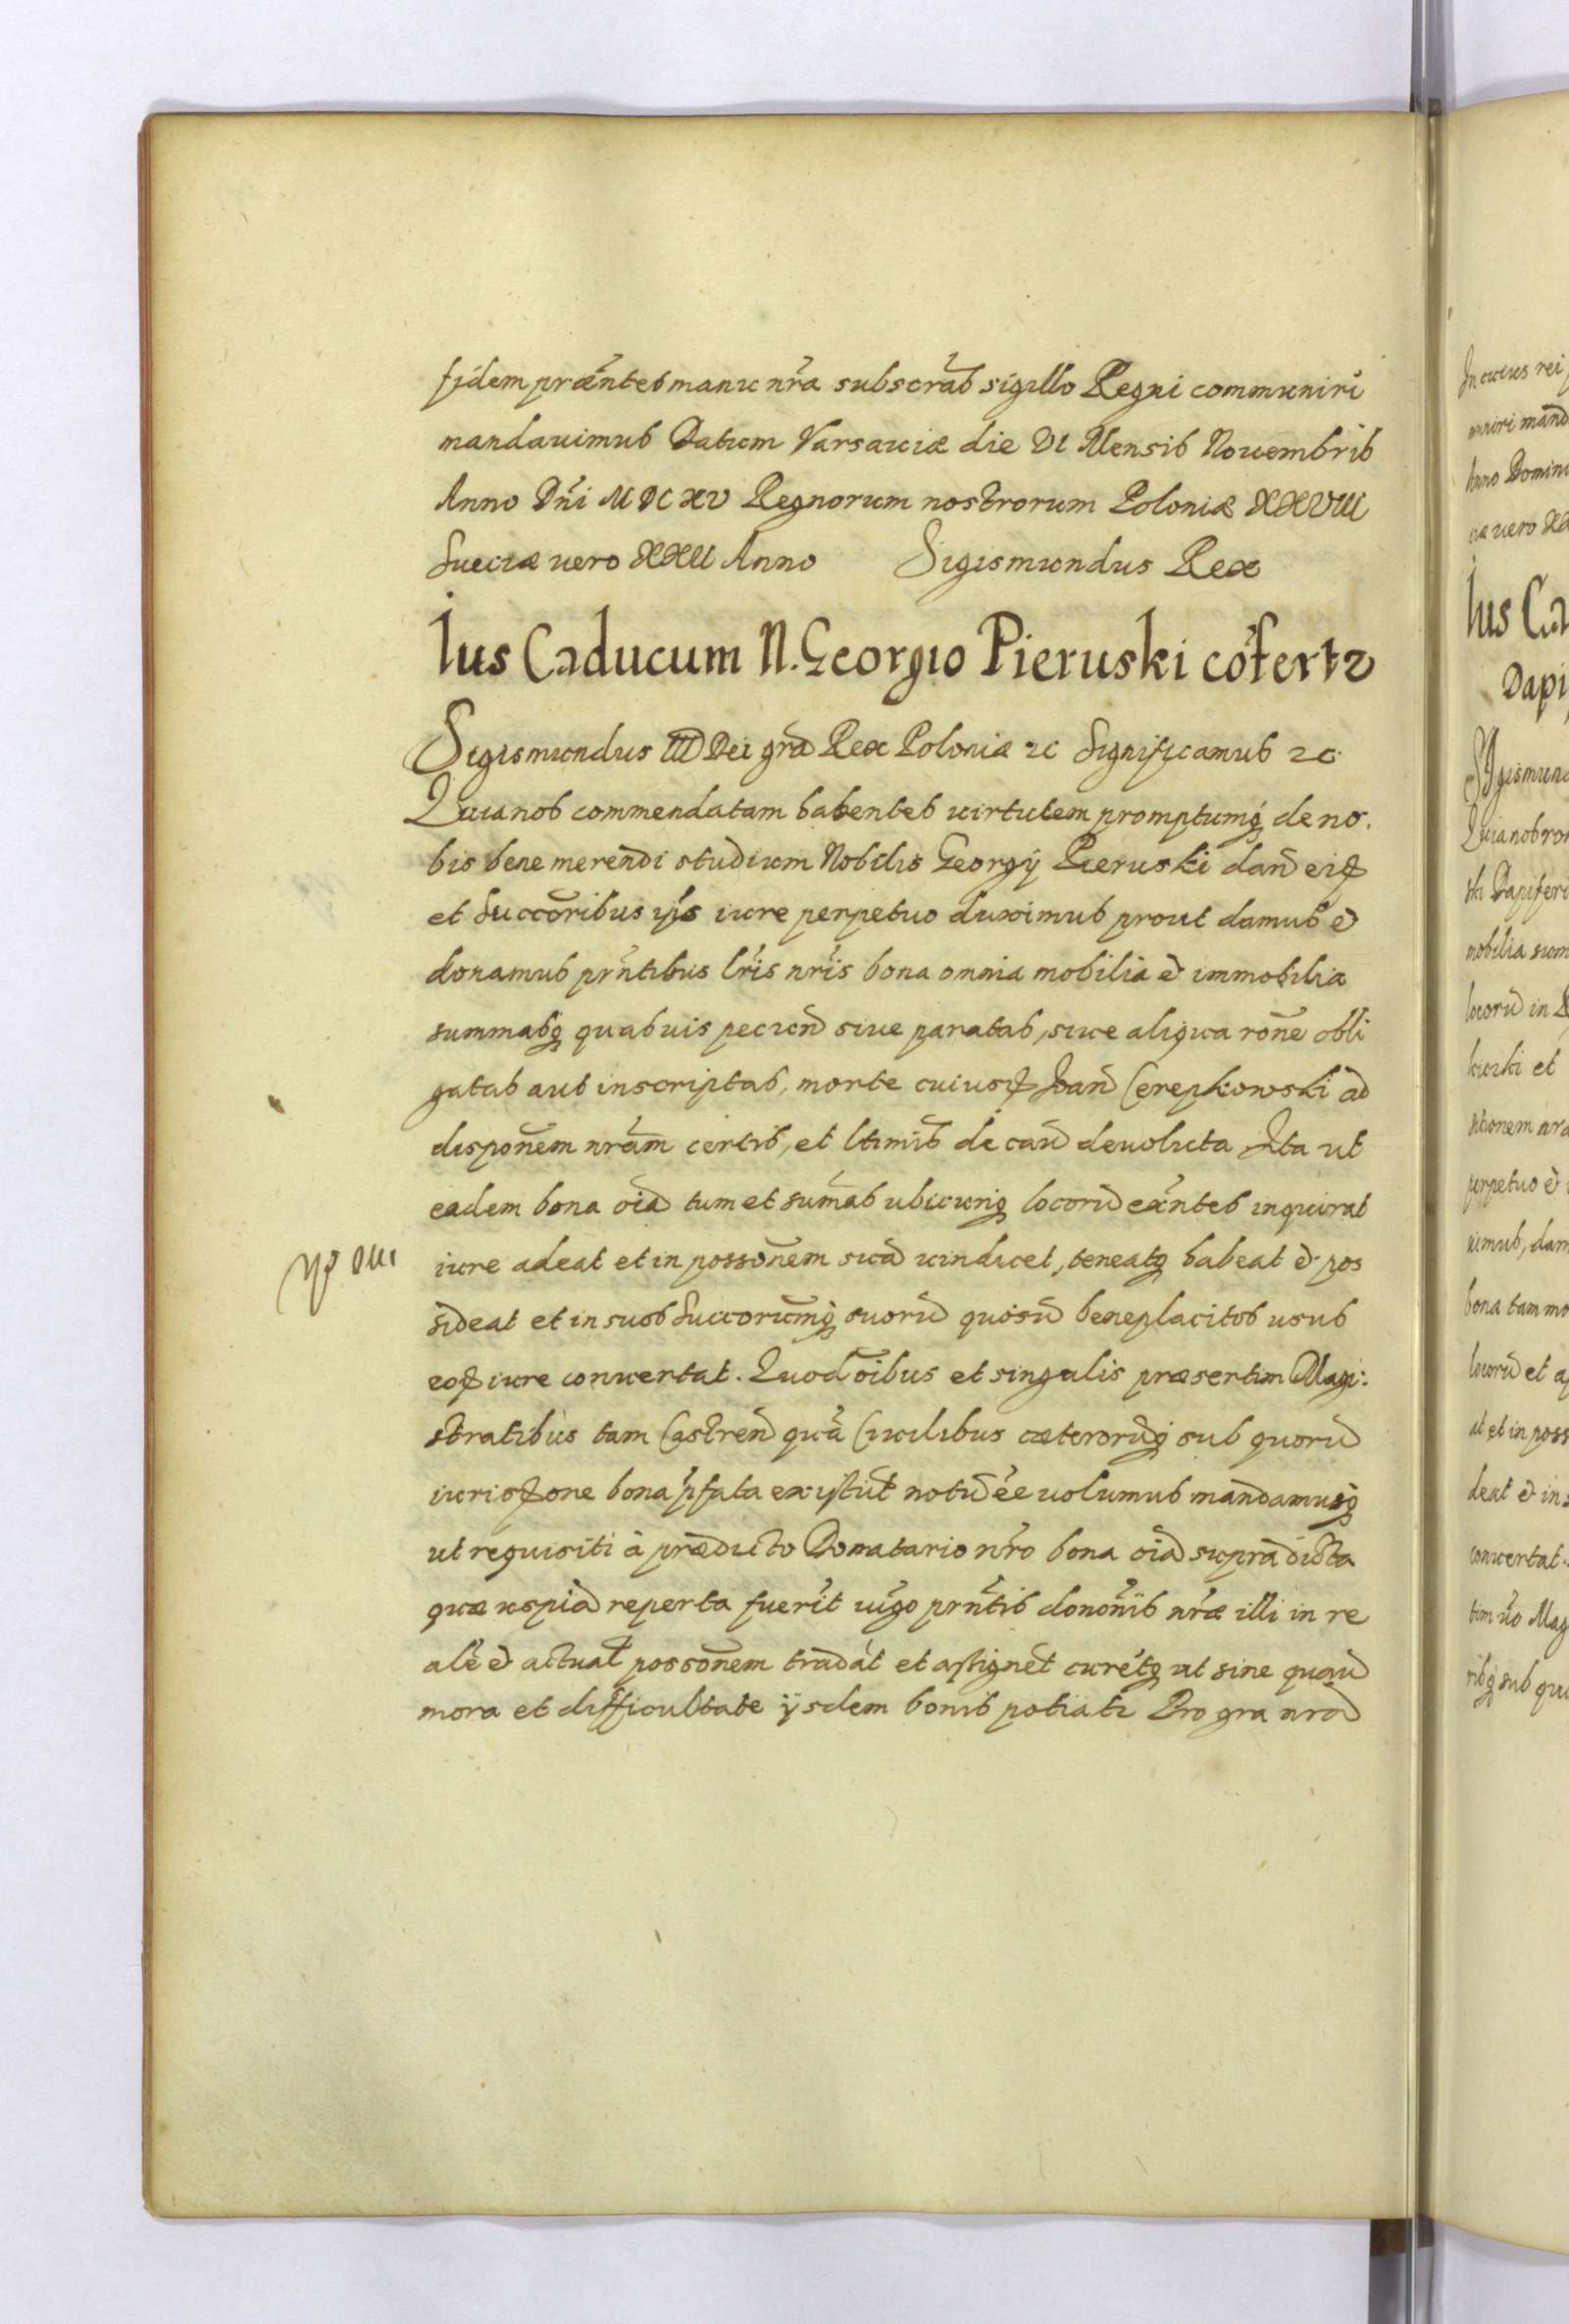 fidem præntes manu nra subscras sigillo Regni communiri
mandauimus Datum Varsauiæ die VI Mensis Nouembris
Anno Dni MDCXV Regnorum nostrorum Poloniæ XXVIII
Sueciæ uero XXII Anno Sigismundus Rex
Ius Caducum N. Georgio Pieruski cófertr
Sigismundus III Dei gra Rex Poloniæ etc Significamus etc.
Quia nos commendatam habentes uirtutem promptumq de no.
bis bene merendi studium Nobilis Georgij Pieruski dand eid
et Succoribus ijs iure perpetuo duximus prout damus et
donamus prntibus lris nris bona omnia mobilia et immobilia
summasq quasuis pecun siue paratas, siue aliqua rone obli
gatas aut inscriptas, morte cuiusd Joan Cerepkowski ad
disponem nram certis, et ltimis de cau deuoluta Ita ut
eadem bona oia tum et sumas ubicunq locoru exntes inquirat
iure adeat et in possonem sua uindicet, teneatq habeat et pos
sideat et in suos Succorumq suoru quosu beneplacitos usus
eod iure conuertat. Quod oibus et singulis præsertim Magi:
stratibus tam Castren quã Ciuilibus cæterorumq sub quoru
iurisdone bona pfata existut notu ee uolumus mandamusq
ut requisiti à prædicto Donatario nro bona oia supradicta
quæ uspia reperta fuerit uigo prntis dononis nræ illi in re
ale et actual possonem tradát et assignet curétq ut sine quau
mora et difficultate ijsdem bonis potiatr Pro gra nra
In cuius rei
muniri mand
Anno Domin
iæ uero XX
Ius Ca
Dapi
Sigismund
Quia nos
ski Dapiferi
mobilia sum
locoru in
et
perpetuo et
ximus, dam
bona tam mo
locoru et
at et in poss
deat et in s
conuertat.
tim uro Mag
sub quo